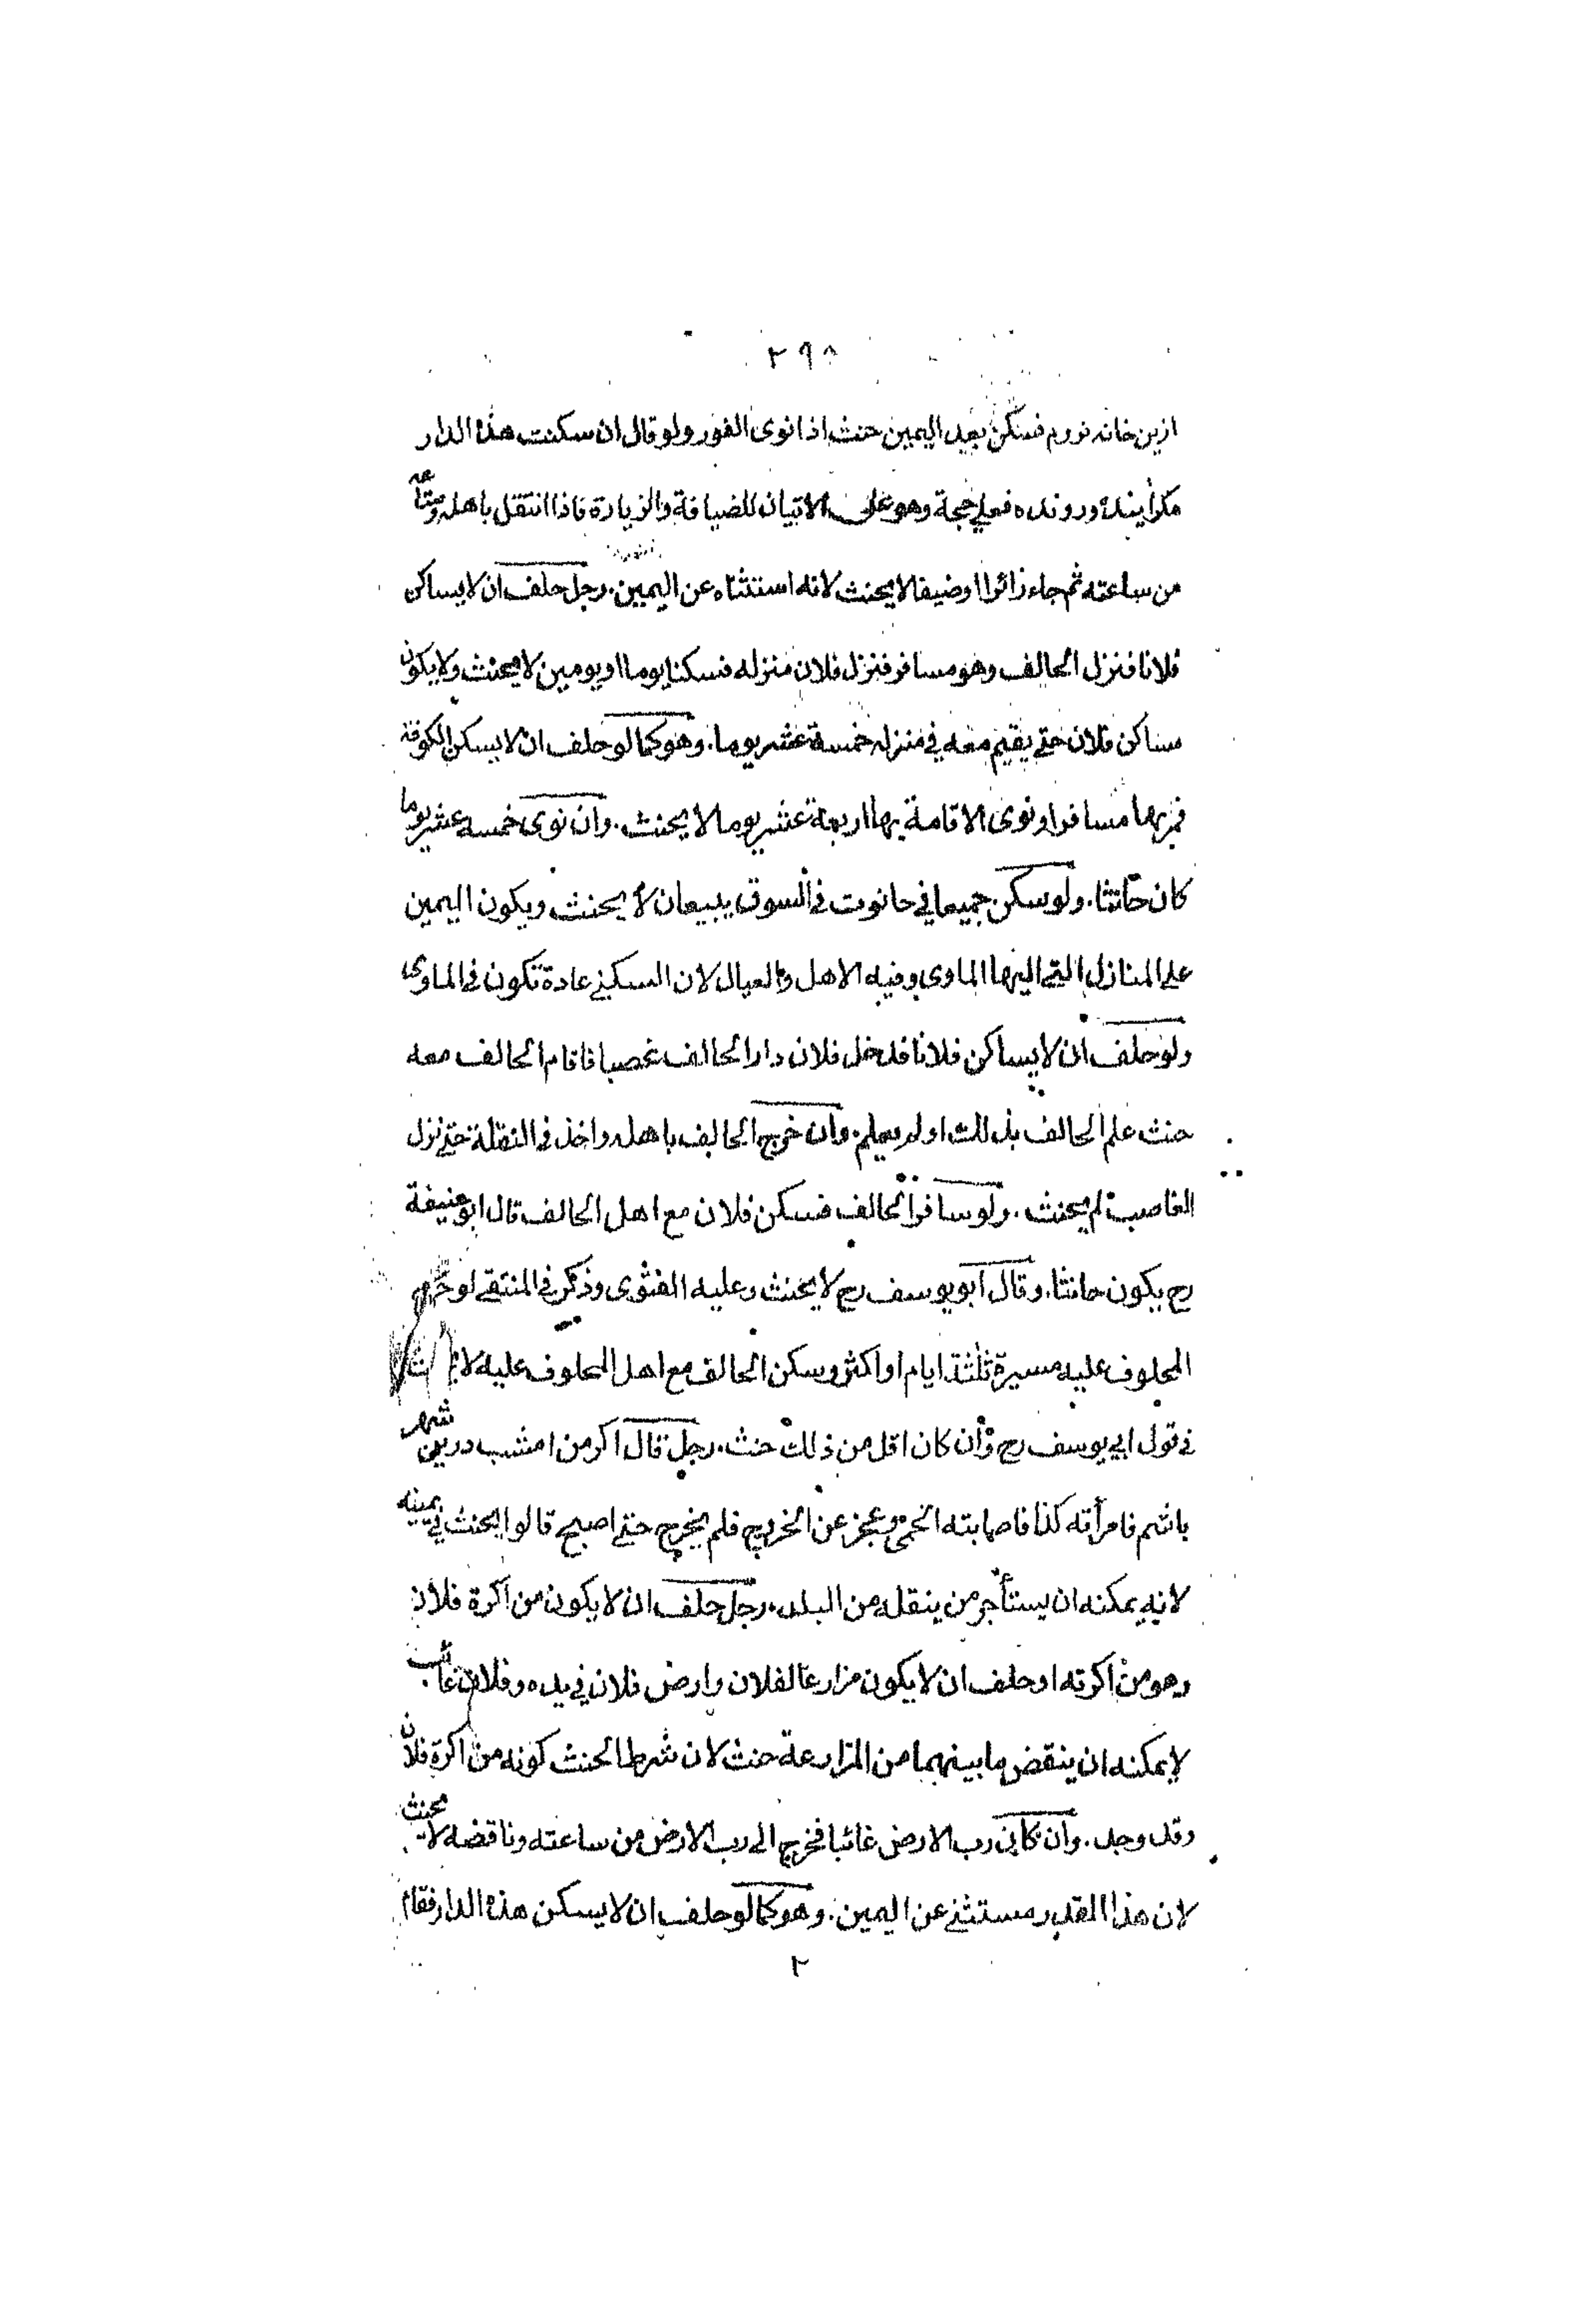 ٢٩٨
ازين خانه نروم فسكن بعد اليمين حنث اذا نوى الفور ولو قال ان سكنت هذه الدار
مكر آينده ورونده فعلي حجة وهو على الاتيان للضيافة والزيارة فاذا انتقل باهله ومتاعه
من ساعته ثم جاء زائرا اوضيفا لا يحنث لانه استثناه عن اليمين. رجل حلف ان لا يساكن
فلانا فنزل الحالف وهو مسافر فنزل فلان منزله فسكنا يوما او يومين لا يحنث ولا يكون
مساكن فلان حتى يقيم معه في منزله خمسة عشر يوما. وهو كما لو حلف ان لا يسكن الكوفة
فمر بها مسافرا ونوى الاقامة بها اربعة عشر يوما لا يحنث. وان نوى خمسة عشر يوما
كان حانثا. ولو سكن جميعا في حانوت في السوق يبيعان لا يحنث ويكون اليمين
على المنازل التي اليها الماوى وفيه الاهل والعيال لان السكنى عادة تكون في الماوى
ولو حلف ان لا يساكن فلانا فدخل فلان دار الحالف غصبا فاقام الحالف معه
حنث علم الحالف بذلك اولم يعلم. وان خرج الحالف باهله واخذ في النقلة حتى نزل
الغاصب لم يحنث. ولو سافر الحالف فسكن فلان مع اهل الحالف قال ابو حنيفة
رح يكون حانثا. وقال ابو يوسف رح لا يحنث وعليه الفتوى وذكر في المنتقى لو خرج
المحلوف عليه مسيرة ثلثة ايام او اكثر وسكن الحالف مع اهل المحلوف عليه لا
في قول ابي يوسف رح وان كان اقل من ذلك حنث. رجل قال اكر من امشب درين شهر
باشم فامرأته كذا فاصابته الحمى وعجز عن الخروج فلم يخرج حتى اصبح قالوا يحنث في يمينه
لانه يمكنه ان يستأجر من ينقله من البلد. رجل حلف ان لا يكون من اكرة فلان
وهو من اكرته او حلف ان لا يكون مزارعا لفلان وارض فلان في يده وفلان غائب
لا يمكنه ان ينقض ما بينهما من المزارعة حنث لان شرط الحنث كونه من اكرة فلان
وقد وجد. وان كان رب الارض غائبا فخرج الى رب الارض من ساعته وناقضه لا يحنث
لان هذا القدر مستثنى عن اليمين. وهو كما لو حلف ان لا يسكن هذه الدار فقام
٢